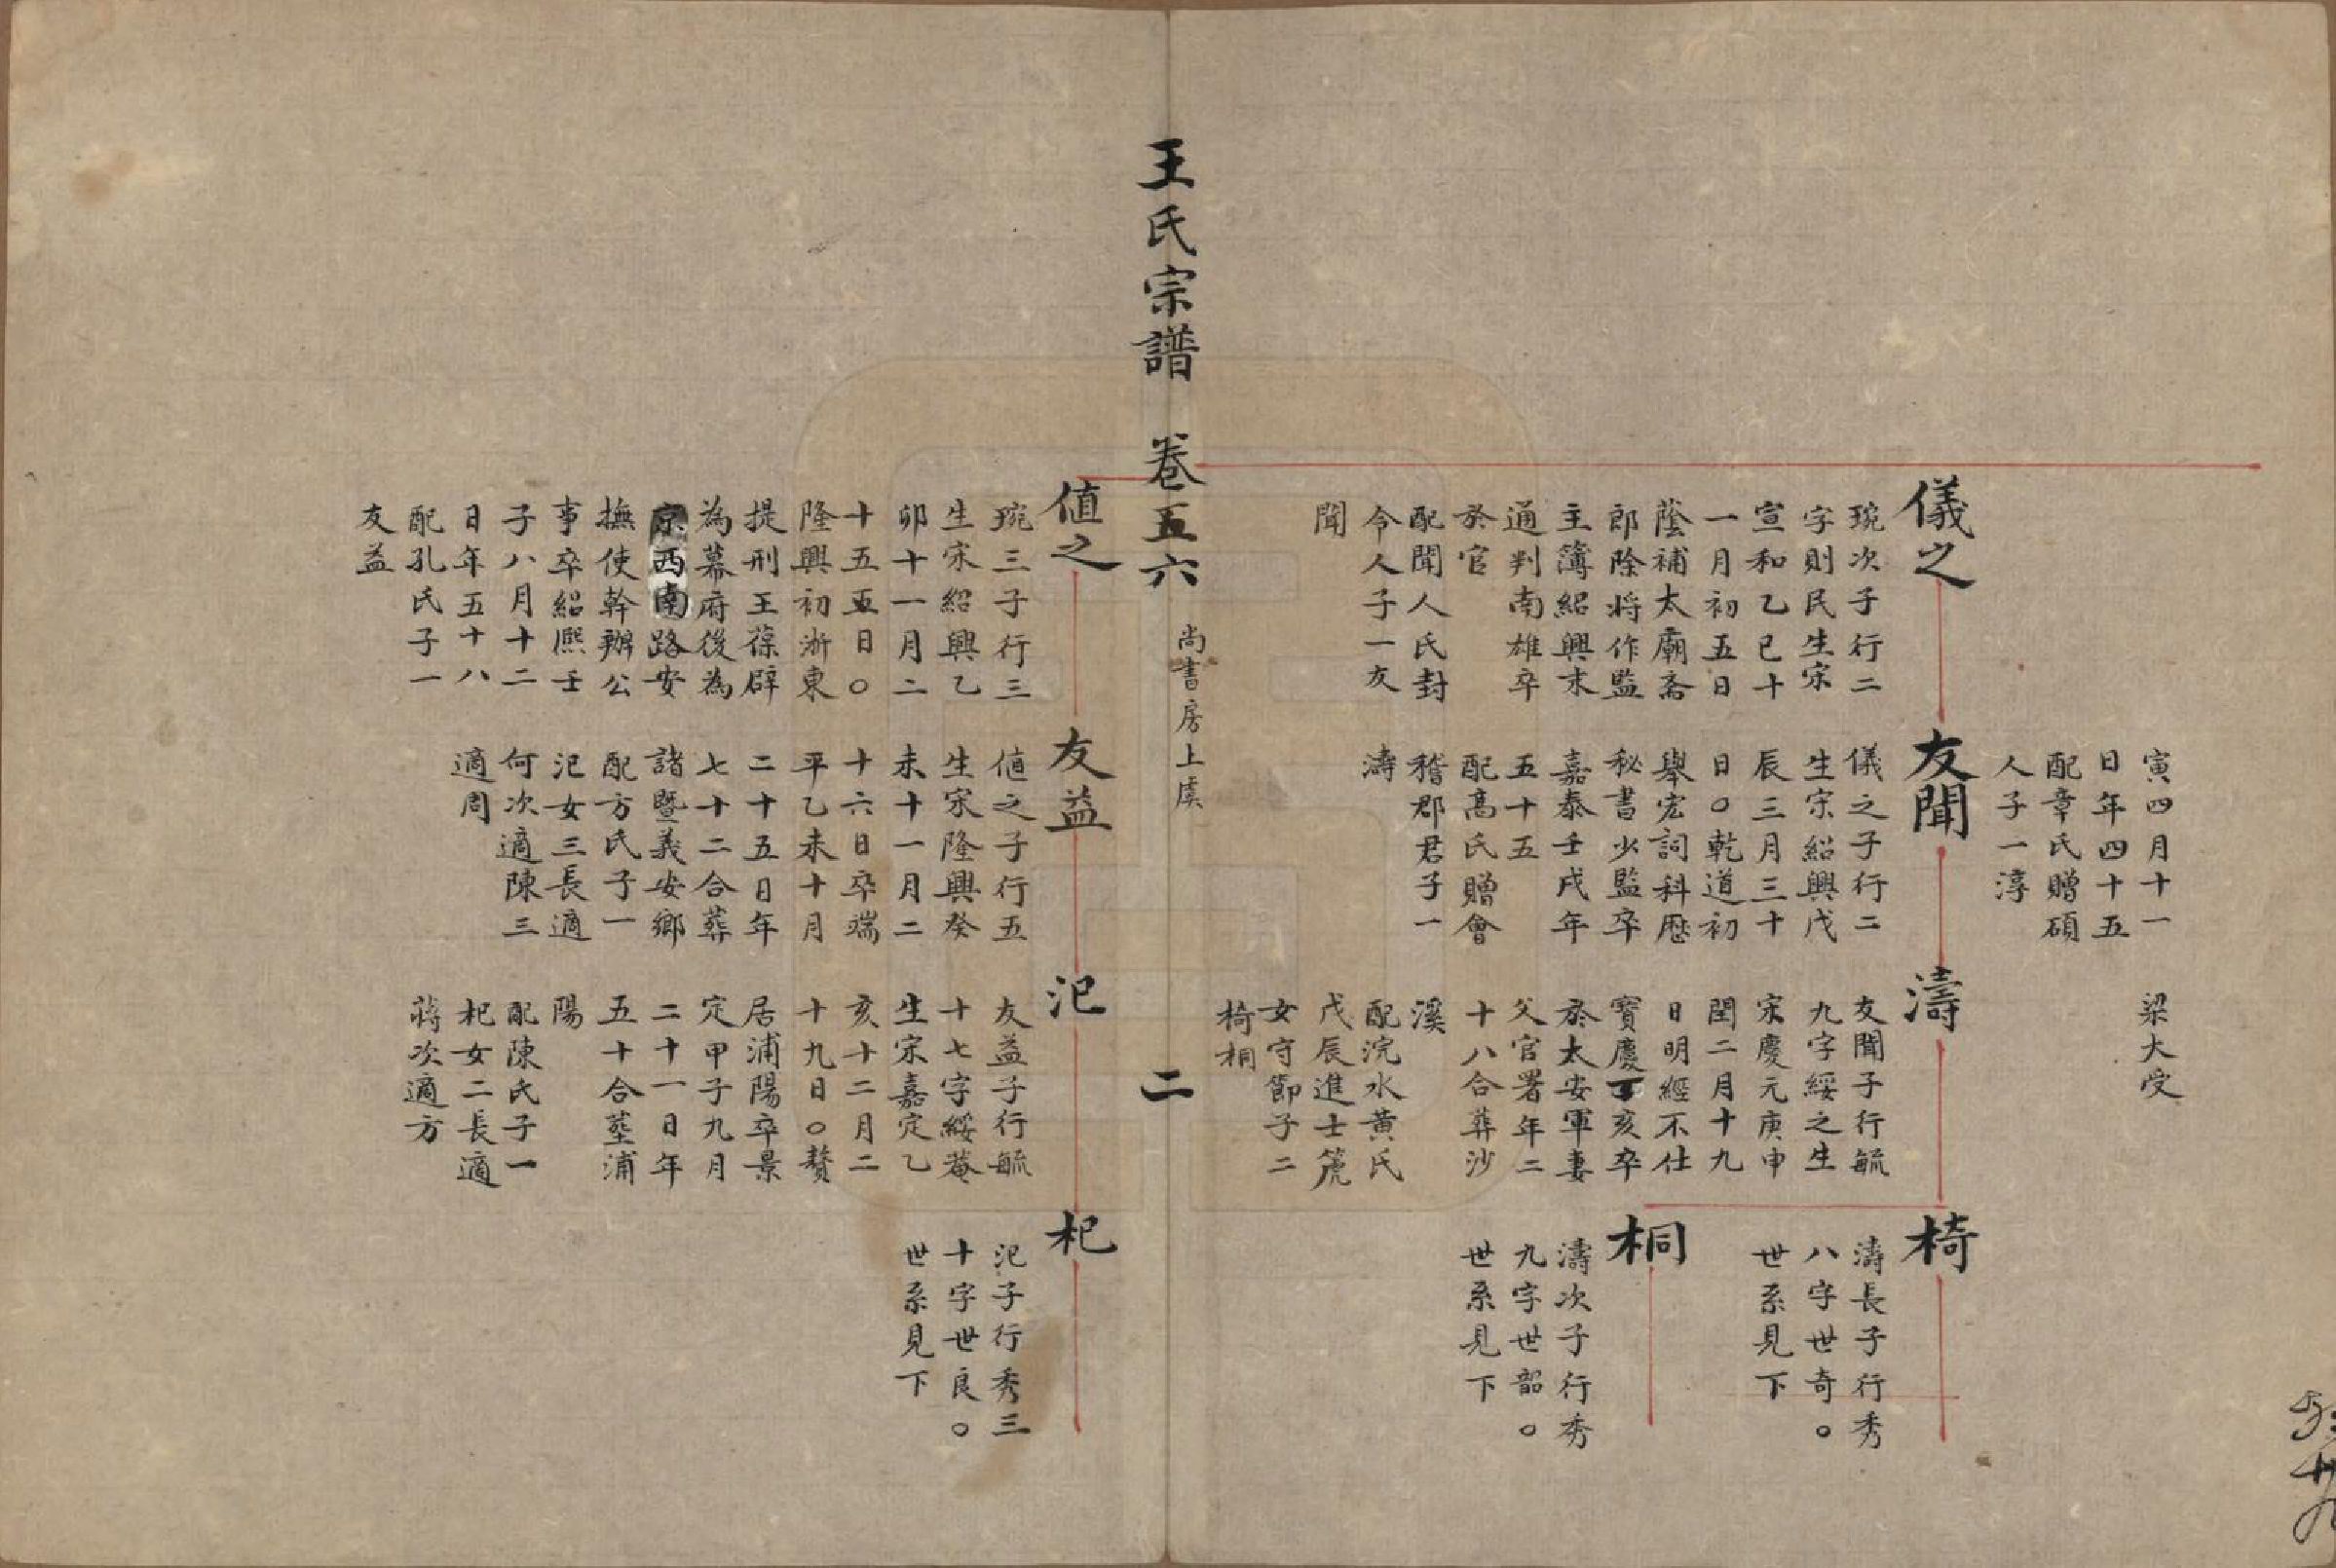 寅四月十一
日年四十五
配章氏贈碩
人子一淳
梁大受
儀之
琬次子行二
字則民生宋
宣和乙巳十
一月初五日
蔭補太廟斎
郎除将作監
主簿紹興末
通判南雄卒
於官
配聞人氏封
令人子一友
聞
友聞
儀之子行二
生宗紹興戊
辰三月三十
日〇乾道初
舉宏詞科歴
秘書少監卒
嘉泰壬戌年
五十五
配高氏贈會
稽郡君子一
濤
濤
友聞子行毓
九字綏之生
宋慶元庚申
閏二月十九
日明經不仕
寳慶丁亥卒
於太安軍妻
父官署年二
十八合葬沙
溪
配浣水黄氏
戊辰進士箎
女守節子二
椅桐
椅
濤長子行秀
八字世奇。
世系見下
桐
濤次子行秀
九字世韶。
世系見下
王氏宗譜 卷五六 尚書房上虞 二
値之
琬三子行三
生宋紹興乙
卯十一月二
十五五日〇
隆興初浙東
提刑王葆辟
為幕府後為
京西南路安
撫使幹辦公
事卒紹熙壬
子八月十二
日年五十八
配孔氏子一
友益
友益
値之子行五
生宋隆興癸
未十一月二
十六日卒端
平乙未十月
二十五日年
七十二合葬
諸暨義安鄉
配方氏子一
汜女三長適
何次適陳三
適周
汜
友益子行毓
十七字綏菴
生宋嘉定乙
亥十二月二
十九日〇贅
居浦陽卒景
定甲子九月
二十一日年
五十合塟浦
陽
配陳氏子一
杞女二長適
蔣次適方
杞
汜子行秀三
十字世良。
世系見下